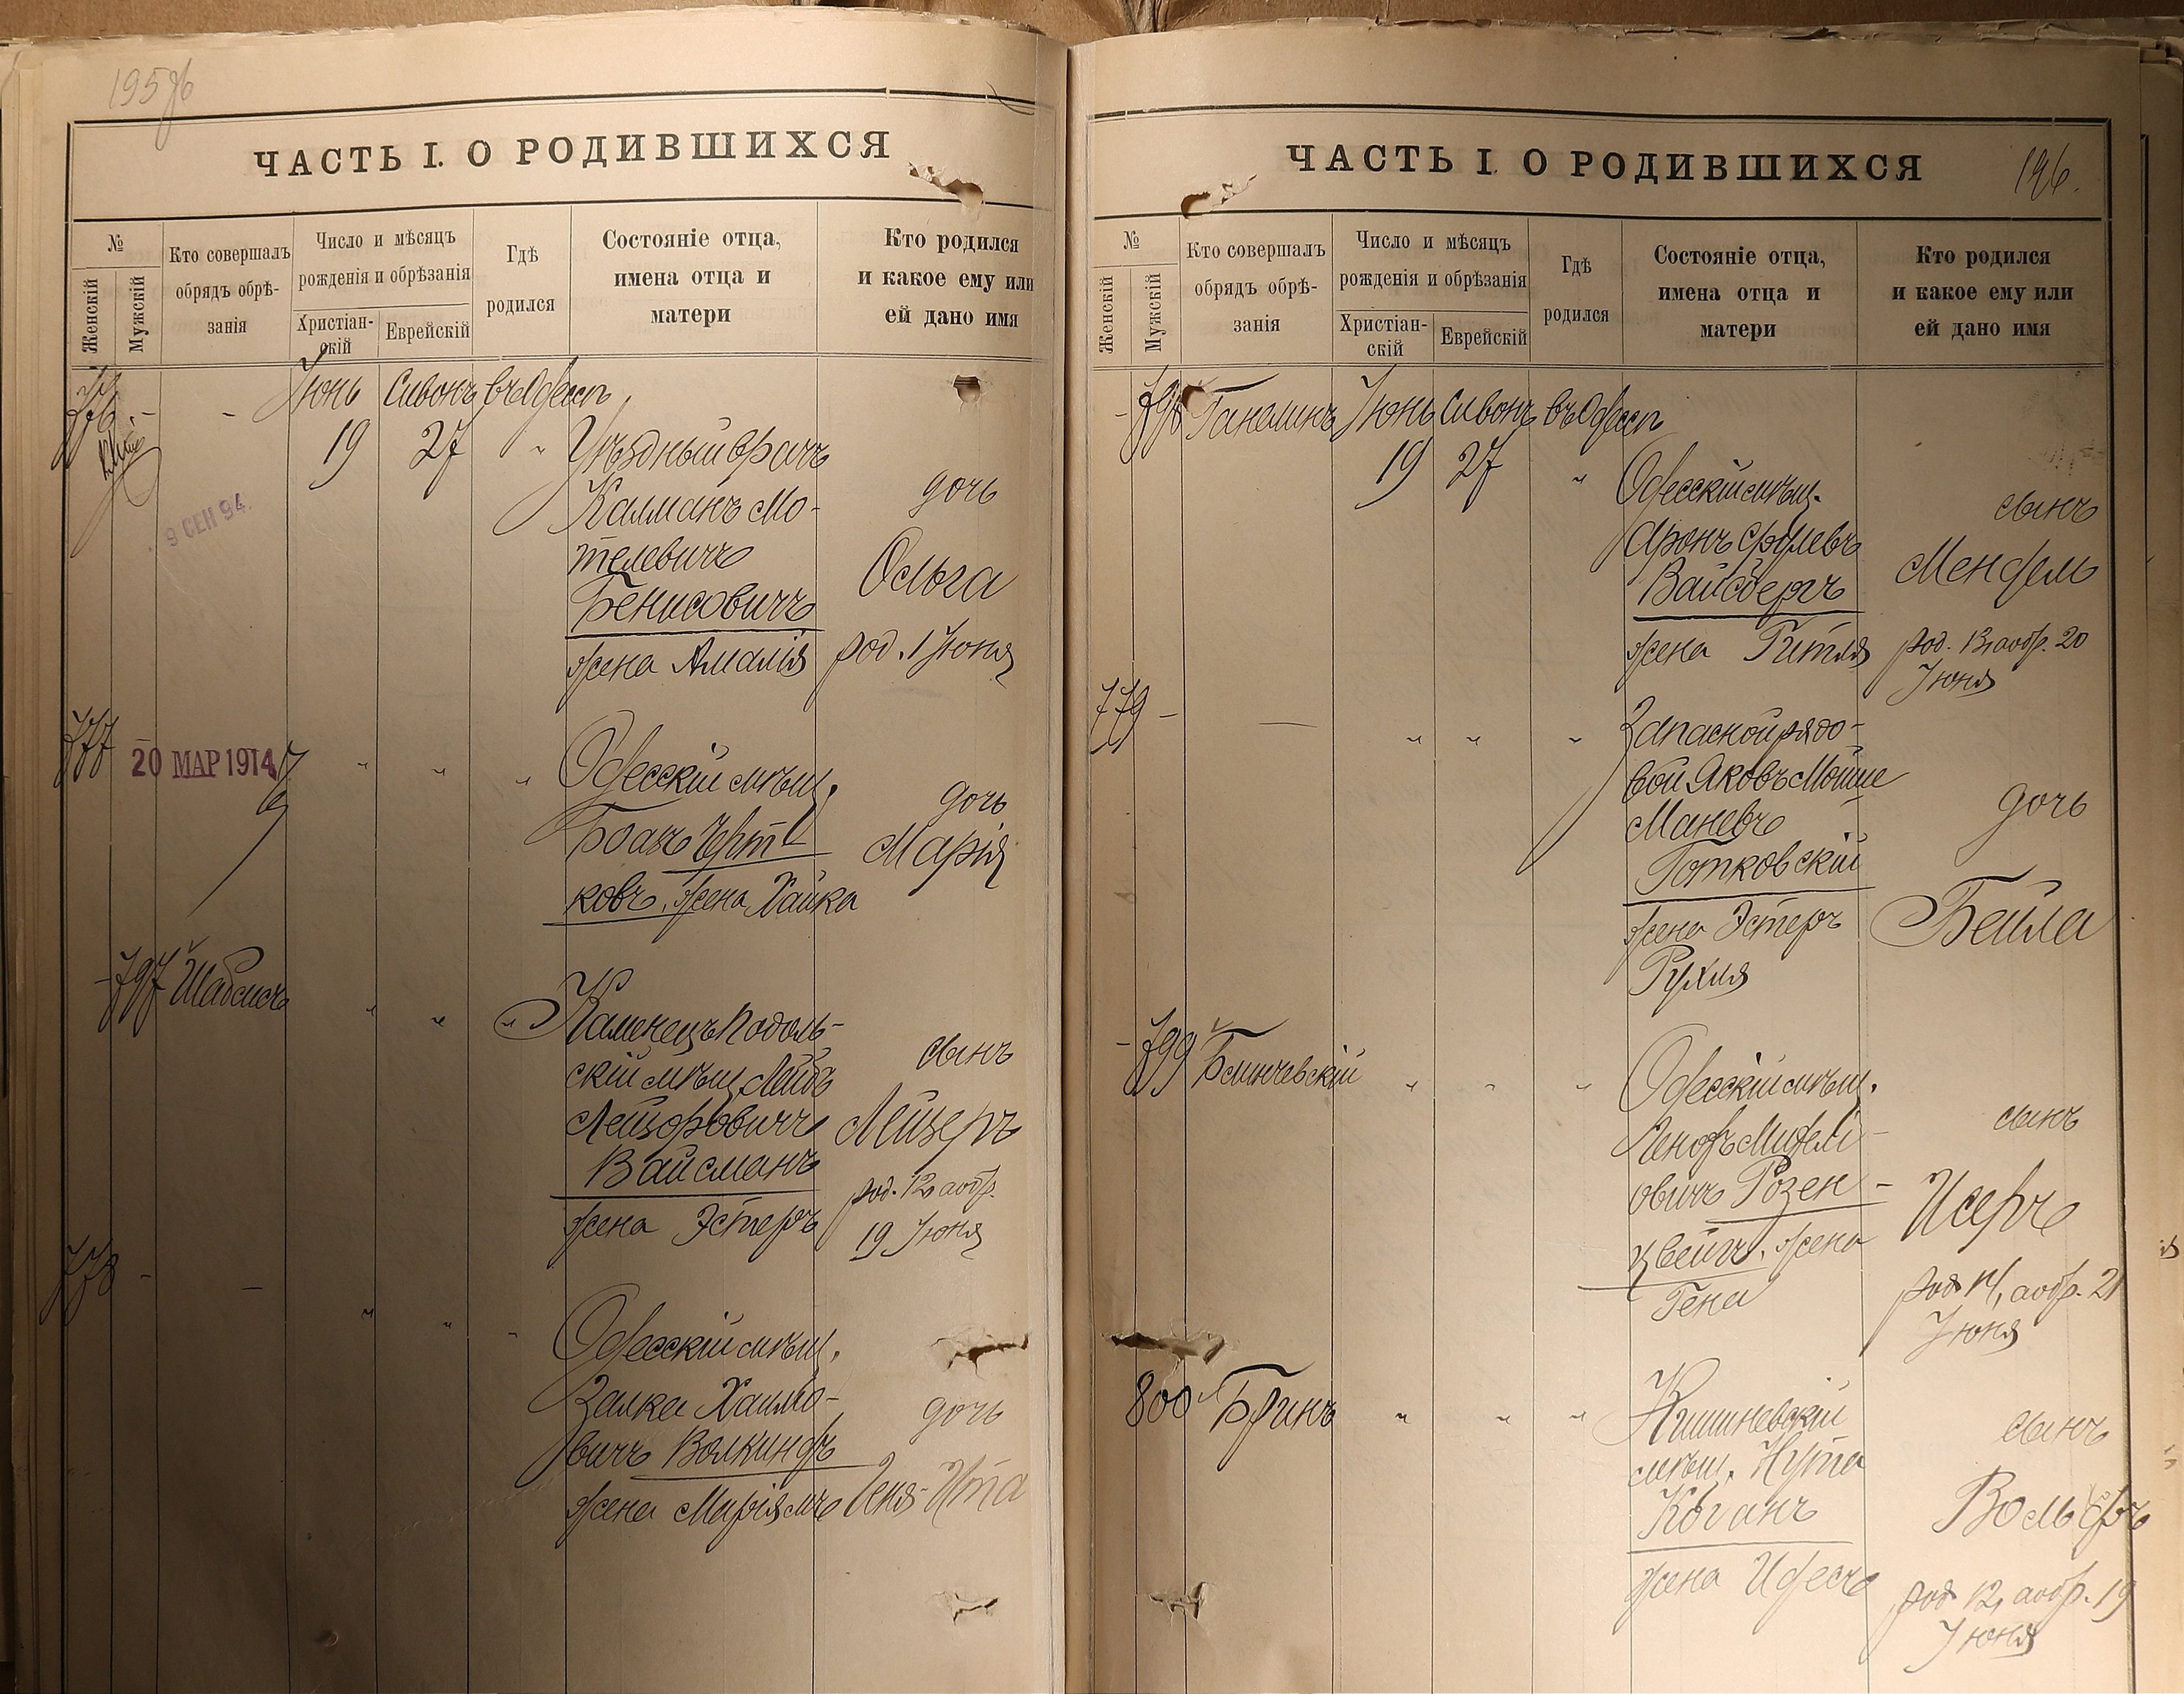 195об
ЧАСТЬ I. О РОДИВШИХСЯ
№
Женскій
Мужскій
Кто совершалъ
обрядъ обрѣ-
занія
Число и мѣсяцъ
рожденія и обрѣзанія
Христіан-
скій
Еврейскій
Гдѣ
родился
Состояніе отца,
имена отца и
матери
Кто родился
и какое ему или
ей дано имя
776. - - Іюнь Сивонъ въ Одессѣ
19 27 " Уѣздный врачъ
Калманъ Мо-
телевичъ
Бенисовичъ
жена Амалія
дочь
Ольга
род. 1 Іюня
9 СЕН 94.
777 - " " " Одесскій мѣщ.
20 МАР 1914
Боазъ Черт
ковъ, жена Хайка
дочь
Марія
- 797 Шабсисъ " " " Каменецъ Подоль-
скій мѣщ. Лейбъ
Лейзоровичъ
Вайсманъ
жена Эстеръ
сынъ
Лейзеръ
род. 12, а обр.
19 Іюня
778 - - " " " Одесскій мѣщ.
Залка Хаимо-
вичъ Волкиндъ
жена Маріямъ
дочь
Геня-Ита
ЧАСТЬ I. О РОДИВШИХСЯ
196.
№
Женскій
Мужскій
Кто совершалъ
обрядъ обрѣ-
занія
Число и мѣсяцъ
рожденія и обрѣзанія
Христіан-
скій
Еврейскій
Гдѣ
родился
Состояніе отца,
имена отца и
матери
Кто родился
и какое ему или
ей дано имя
- 798 Ганелинъ Іюнь Сивонъ въ Одессѣ
19 27 " Одесскій мѣщ.
Аронъ Срулевъ
Вайсбергъ
жена Гитля
сынъ
Мендель
род. 13, а обр. 20
Іюня
779 - - " " " Запасной рядо-
вой Яковъ Мойше
Маневъ
Готковскій
жена Эстеръ
Рухля
дочь
Бейла
- 799 Блинчевскій " " " Одесскій мѣщ.
овичъ Розен-
цвейгъ, жена
Гена
сынъ
Исеръ
род 14, а обр. 21
Іюня
800 Бринъ " " " Кишиневскій
мѣщ. Нута
Коганъ
жена Идесъ
сынъ
Вольфъ
род 12, а обр. 19
Іюня